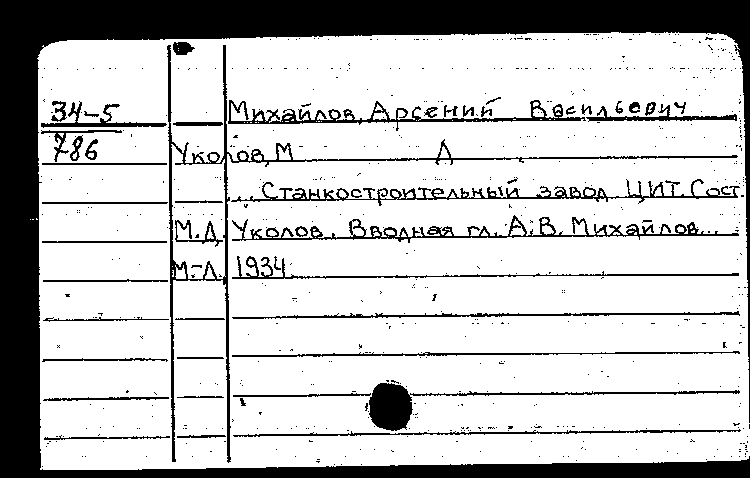 34-5 Михайлов, Арсений Васильевич
786 Уколов, М Д
... Станкостроительный завод ЦИТ. Сост.
М.Д. Уколов. Вводная гл. А.В. Михайлов...
М.-Л. 1934.